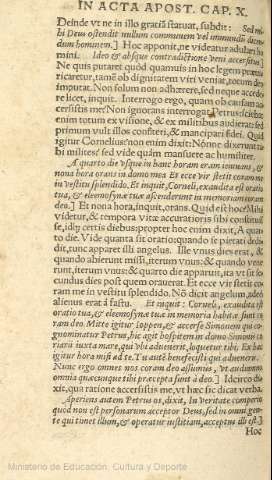 IN ACTA APOST. CAP. X.
Deinde vt ne in illo gratiã statuat, subdit: Sed mi-
hi Deus ostendit nullum communem vel immundũ dicen-
dum hominem.] Hoc apponit, ne videatur adulari ho
mini. Ideo & absque contradictione veni accersitus]
Ne quis putaret quod quamuis in hoc legem præua
ricaretur, tamẽ ob dignitatem viri veniat, totum deo
imputat. Non solum non adhærere, sed neque accede-
re licet, inquit. Interrogo ergo, quam ob causam ac-
cersistis me? Non ignorans interrogat Petrus: sciebat
enim totum ex visione, & ex militibus audierat: sed
primum vult illos confiteri, & mancipari fidei. Quid
igitur Cornelius? non enim dixit: Nonne dixerunt ti-
bi milites? sed vide quàm mansuete ac humiliter.
A quarto die vsque in hanc horam eram ieiunans, &
nona hora orans in domo mea. Et ecce vir stetit coram me
in vestitu splendido. Et inquit, Corneli, exaudita est oratio
tua, & eleemosynæ tuæ ascenderunt in memoriam coram
deo.] Et nona hora, inquit, orans. Quid est hoc? Mihi
videtur, & tempora vitæ accuratioris sibi constituis
se, idq́; certis diebus: propter hoc enim dixit, A quar
to die. Vide quanta sit oratio: quando se pietati dedi-
dit, tunc apparet illi angelus. Ille vnus dies erat, &
quando abierunt missi, iterum vnus: & quando vene
runt, iterum vnus: & quarto die apparuit, ita vt sit se-
cundus dies post quem orauerat. Et ecce vir stetit co-
ram me in vestitu splendido. Nõ dicit angelum, adeò
alienus erat à fastu. Et inquit: Corneli, exaudita est
oratio tua, & eleemosynæ tuæ in memoria habitæ sunt co
ram deo. Mitte igitur Ioppen, & accerse Simonem qui co-
gnominatur Petrus, hic agit hospitem in domo Simonis co
riarij iuxta mare, qui vbi aduenerit, loquetur tibi. Ex hac
igitur hora misi ad te. Tu autẽ benefecisti qui adueneris.
Nunc ergo omnes nos coram deo assumus, vt audiamus
omnia quæcunque tibi præcepta sunt à deo.] Idcirco di-
xit, qua ratione accersistis me, vt hæc sic dicat verba.
Aperiens autem Petrus os, dixit, In veritate comperio
quòd non est personarum acceptor Deus, sed in omni gen-
te qui timet illum, & operatur iustitiam, acceptus illi est.]
Ministerio de Educación, Cultura y Deporte